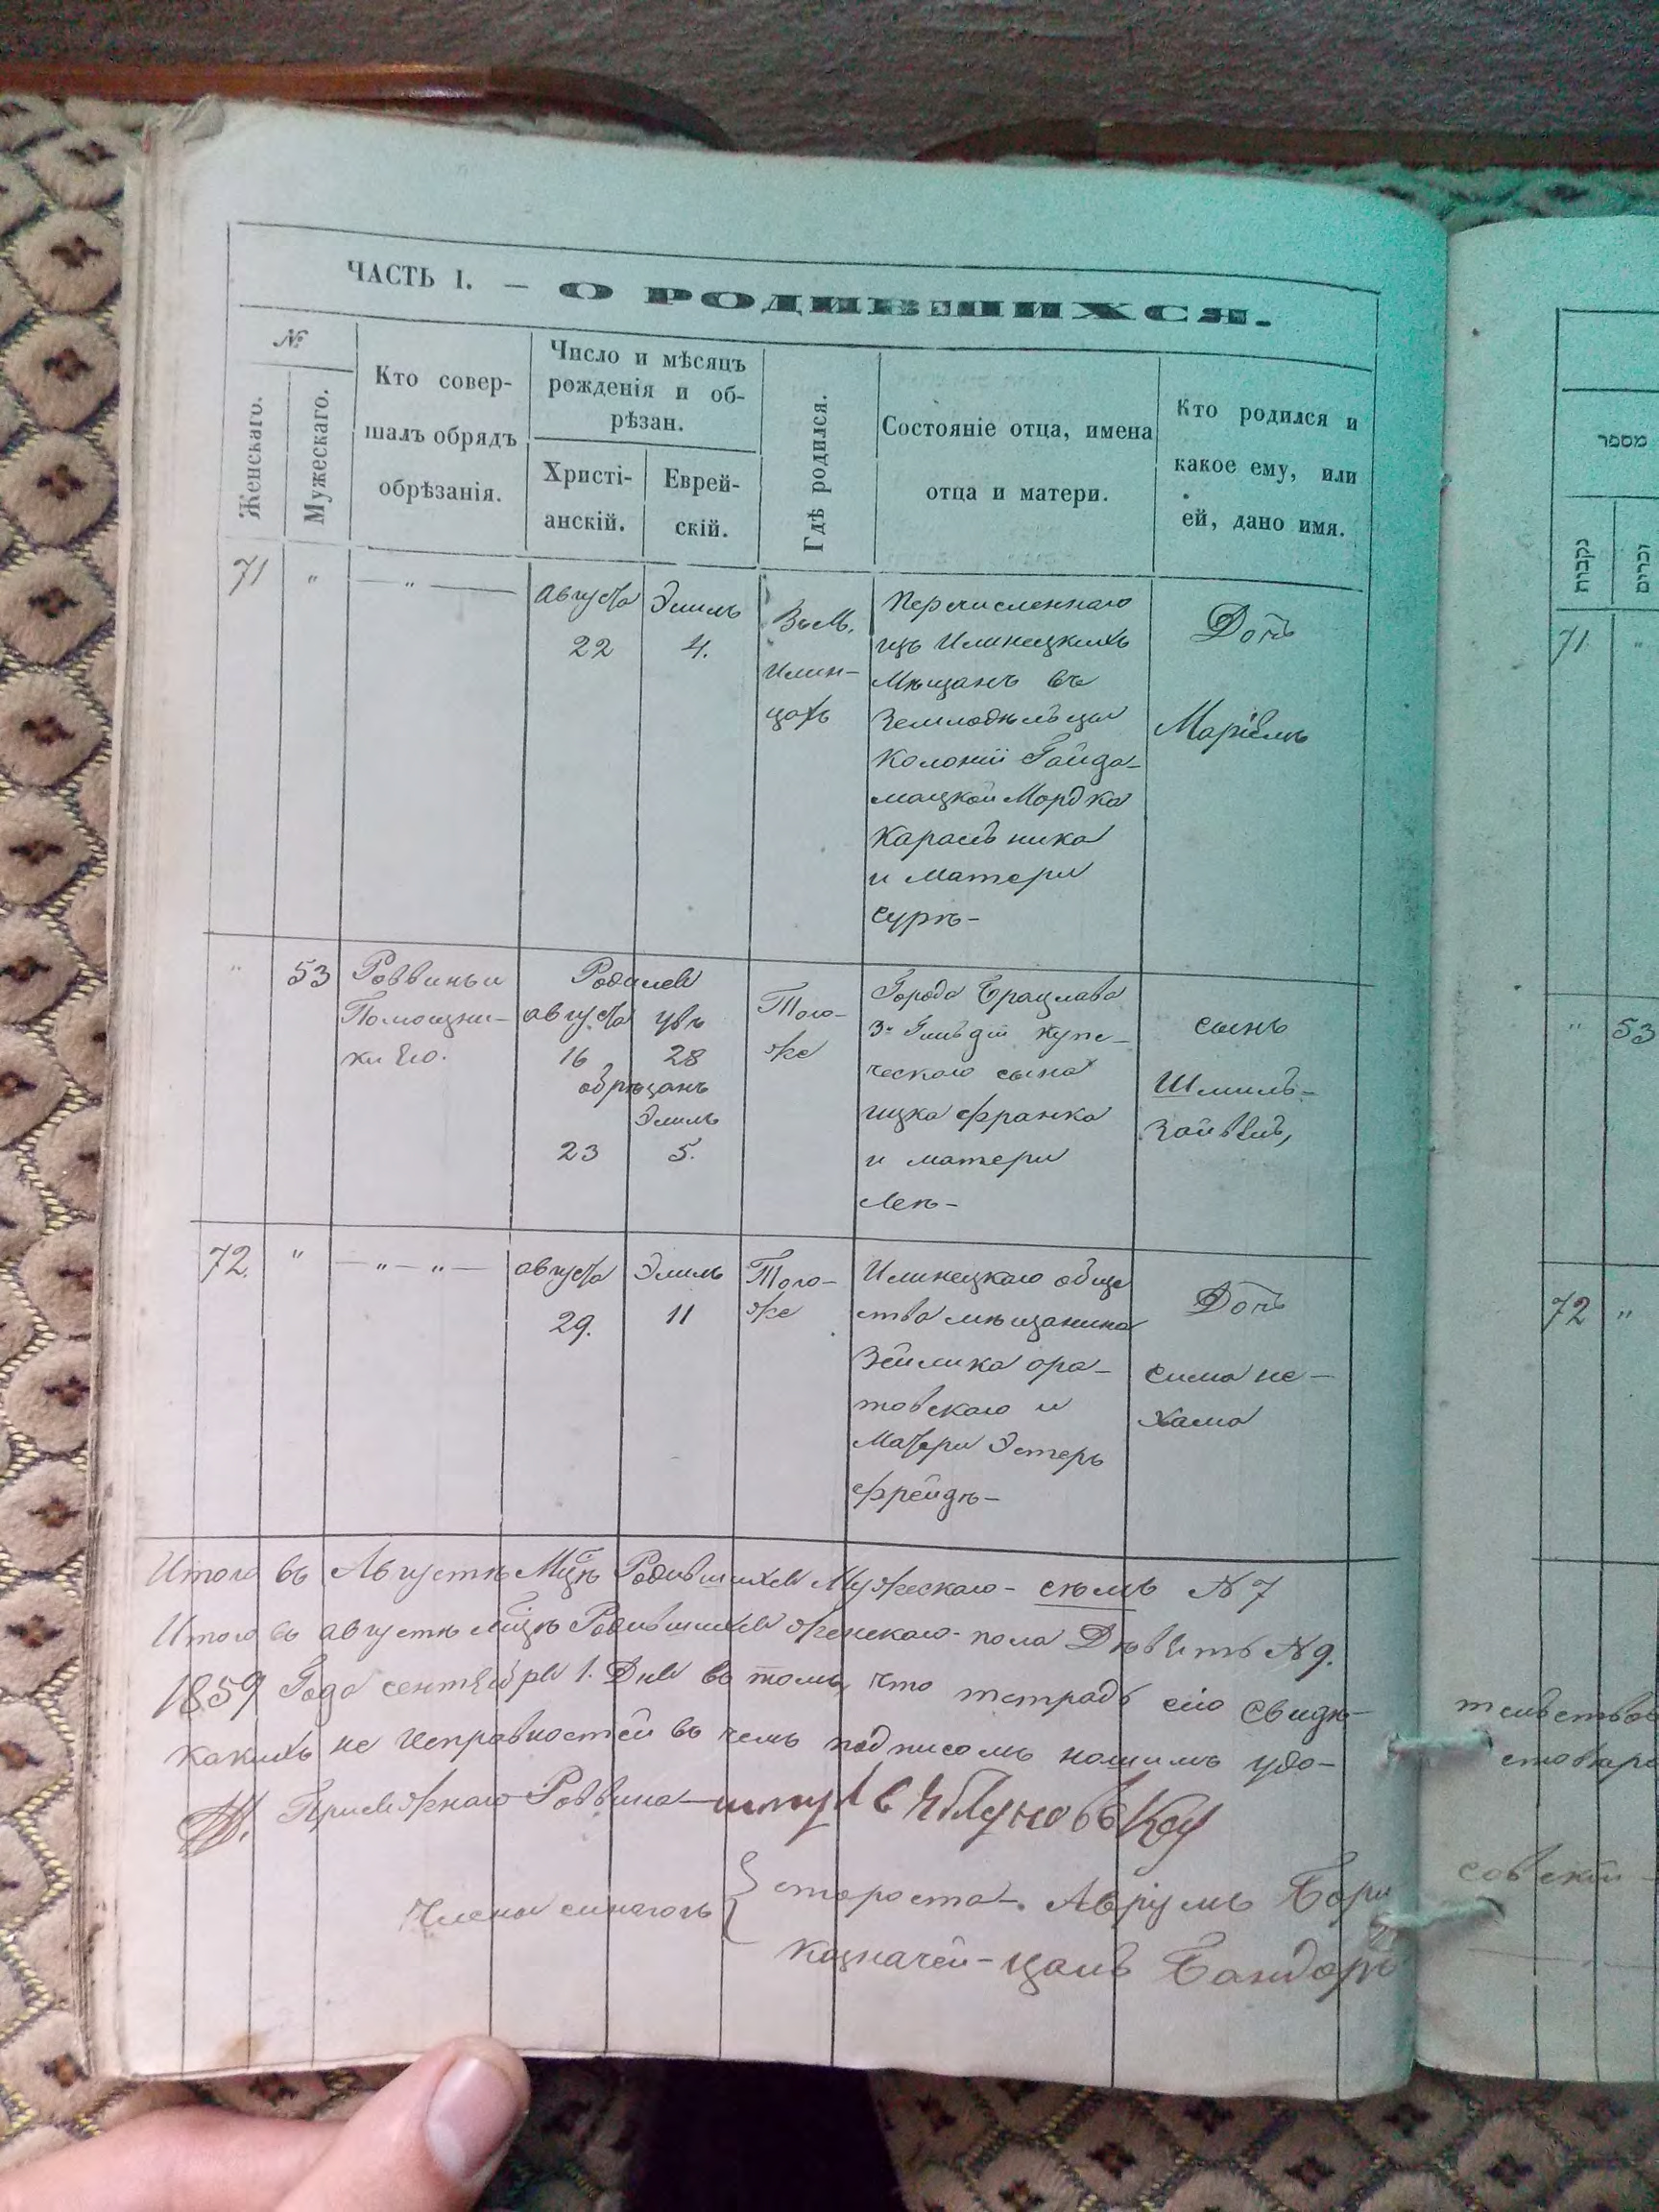 ЧАСТЬ I. — О РОДИВШИХСЯ.
№
Женскаго.
Мужескаго.
Кто совер-
шалъ обрядъ
обрѣзанія.
Число и мѣсяцъ
рожденія и об-
рѣзан.
Христі-
анскій.
Еврей-
скій.
Гдѣ родился.
Состояніе отца, имена
отца и матери.
Кто родился и
какое ему, или
ей, дано имя.
71 " — " —
августа
22
Элиль
4.
Въ М.
Илин-
цахъ
Перечисленнаго
изъ Илинецкихъ
Мѣщанъ въ
Земледѣльцы
Колоніи Гайда-
мацкой Мордка
Карасьника
и матери
Суръ-
Дочь
Маріемъ
" 53
Раввинъ и
Помощни-
ки Его.
Родился
августа
16
увъ
28
обрѣзанъ
Элиль
23 5.
Того-
же
Города Брацлава
3й Гильдіи Купе-
ческаго сына
ицка Франка
и матери
Леѣ-
сынъ
Шмиль-
Зайвель,
72. " — " — " —
августа
29.
Элиль
11
Того-
же
Илинецкаго обще
ства мѣщанина
Зейлика ора-
товскаго и
Матери Эстеръ
Фрейдѣ-
Дочь
Сима не-
хама
Итого въ Августѣ Мцѣ Родившихся Мужескаго - сѣмь № 7
Итого въ августѣ мцѣ Родившихся женскаго-пола Дѣвять № 9.
1859 Года сентября 1. Дня въ томъ, что тетрадь сія Свидѣ-
какихъ не исправностей въ чемъ подписомъ нашимъ удо-
Присяжнаго Раввина
Члены синагогъ
староста-. Аврумъ
Казначей-
מספר
נקבות
זכרים
71 "
" 53
72 "